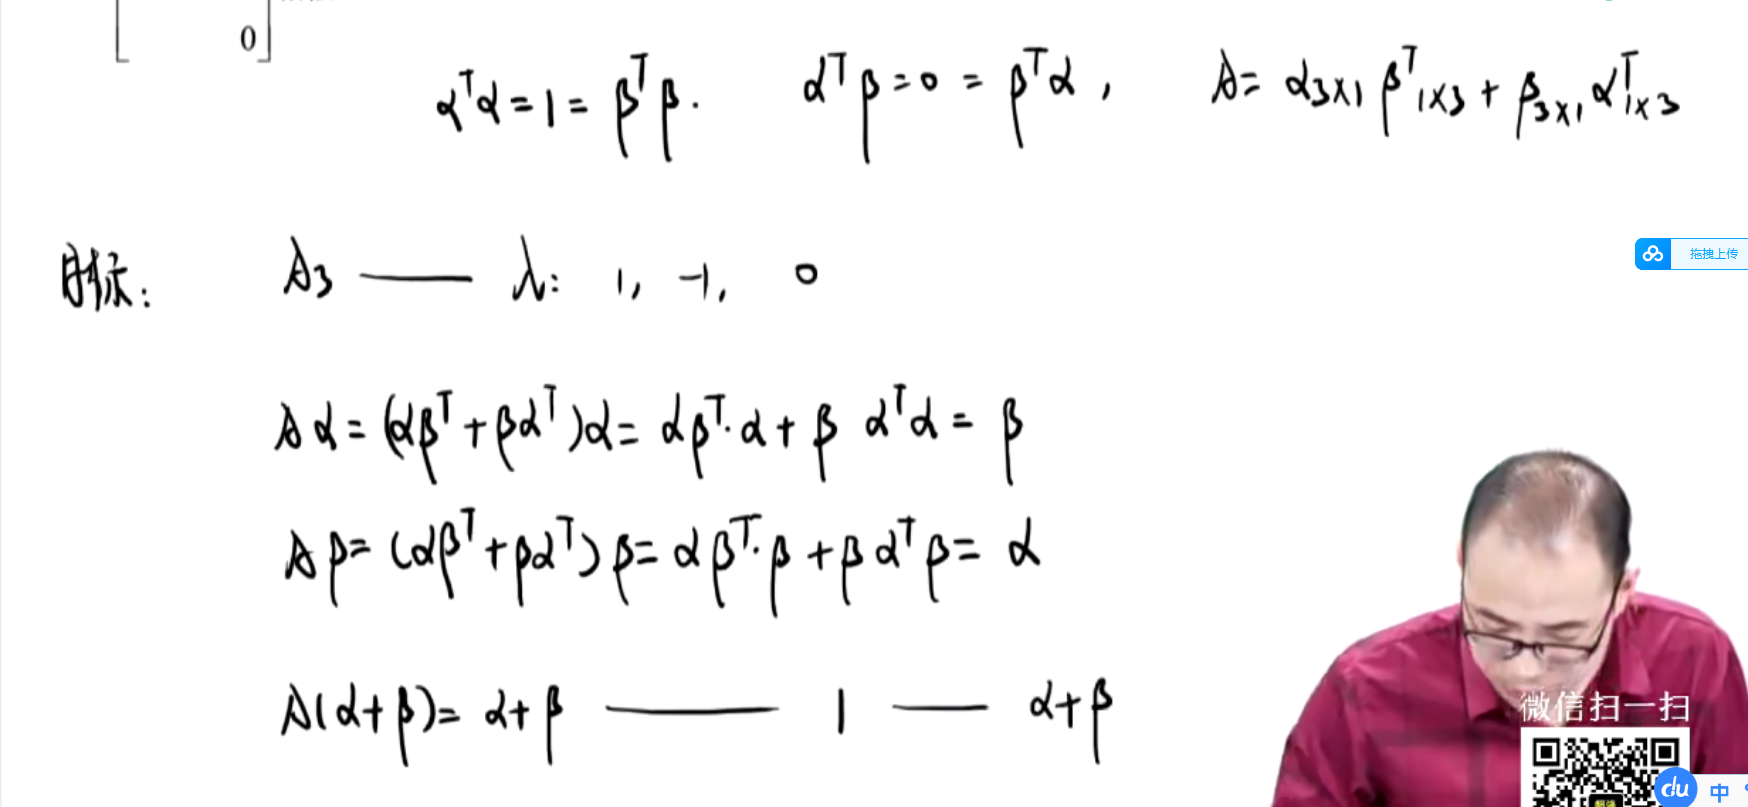 0
αᵀα=1=βᵀβ. αᵀβ=0=βᵀα, A=α₃ₓ₁βᵀ₁ₓ₃+β₃ₓ₁αᵀ₁ₓ₃
目标: A₃ — λ: 1, -1, 0
拖拽上传
Aα=(αβᵀ+βαᵀ)α=αβᵀ·α+β αᵀα=β
Aβ=(αβᵀ+βαᵀ)β=αβᵀ·β+βαᵀβ=α
A(α+β)=α+β — 1 — α+β
微信扫一扫
du 中